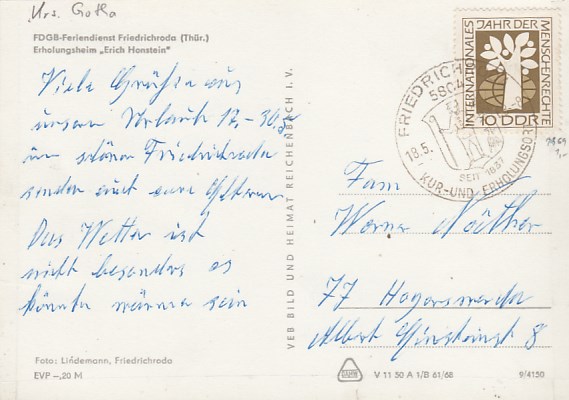 Krs. Gotha
FDGB-Feriendienst Friedrichroda (Thür.)
Erholungsheim „Erich Honstein"
Viele Grüße aus
unserem Urlaub 17.-30.5
im schönen Friedrichroda
senden euch eure Eltern
Das Wetter ist
nicht besonders es
könnte wärmer sein
Foto: Lindemann, Friedrichroda
EVP -,20 M
VEB BILD UND HEIMAT REICHENBACH I. V.
INTERNATIONALES JAHR DER MENSCHENRECHTE
10 DDR
FRIEDRICH
5804
18.5.
SEIT 1837
KUR- UND ERHOLUNGSORT
Fam
Werner Nöther
77 Hoyerswerda
Albert Einsteinst 8
V 11 50 A 1/B 61/68
9/4150